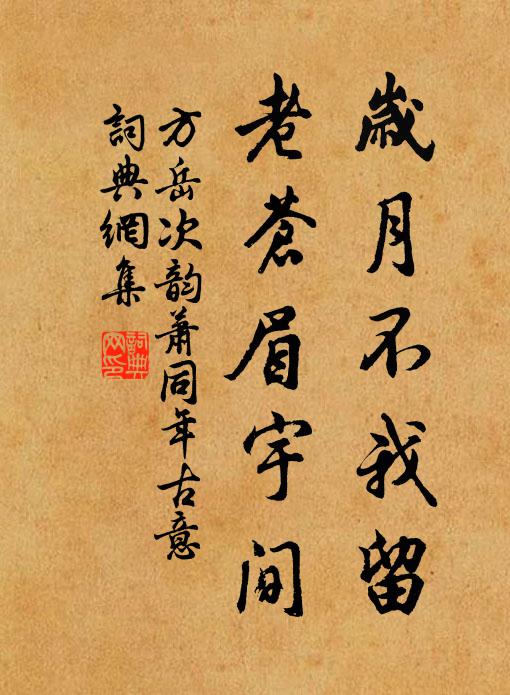 歲月不我留
老蒼眉宇間
方岳次韵蕭同年古意
詞典網集
詞典網印